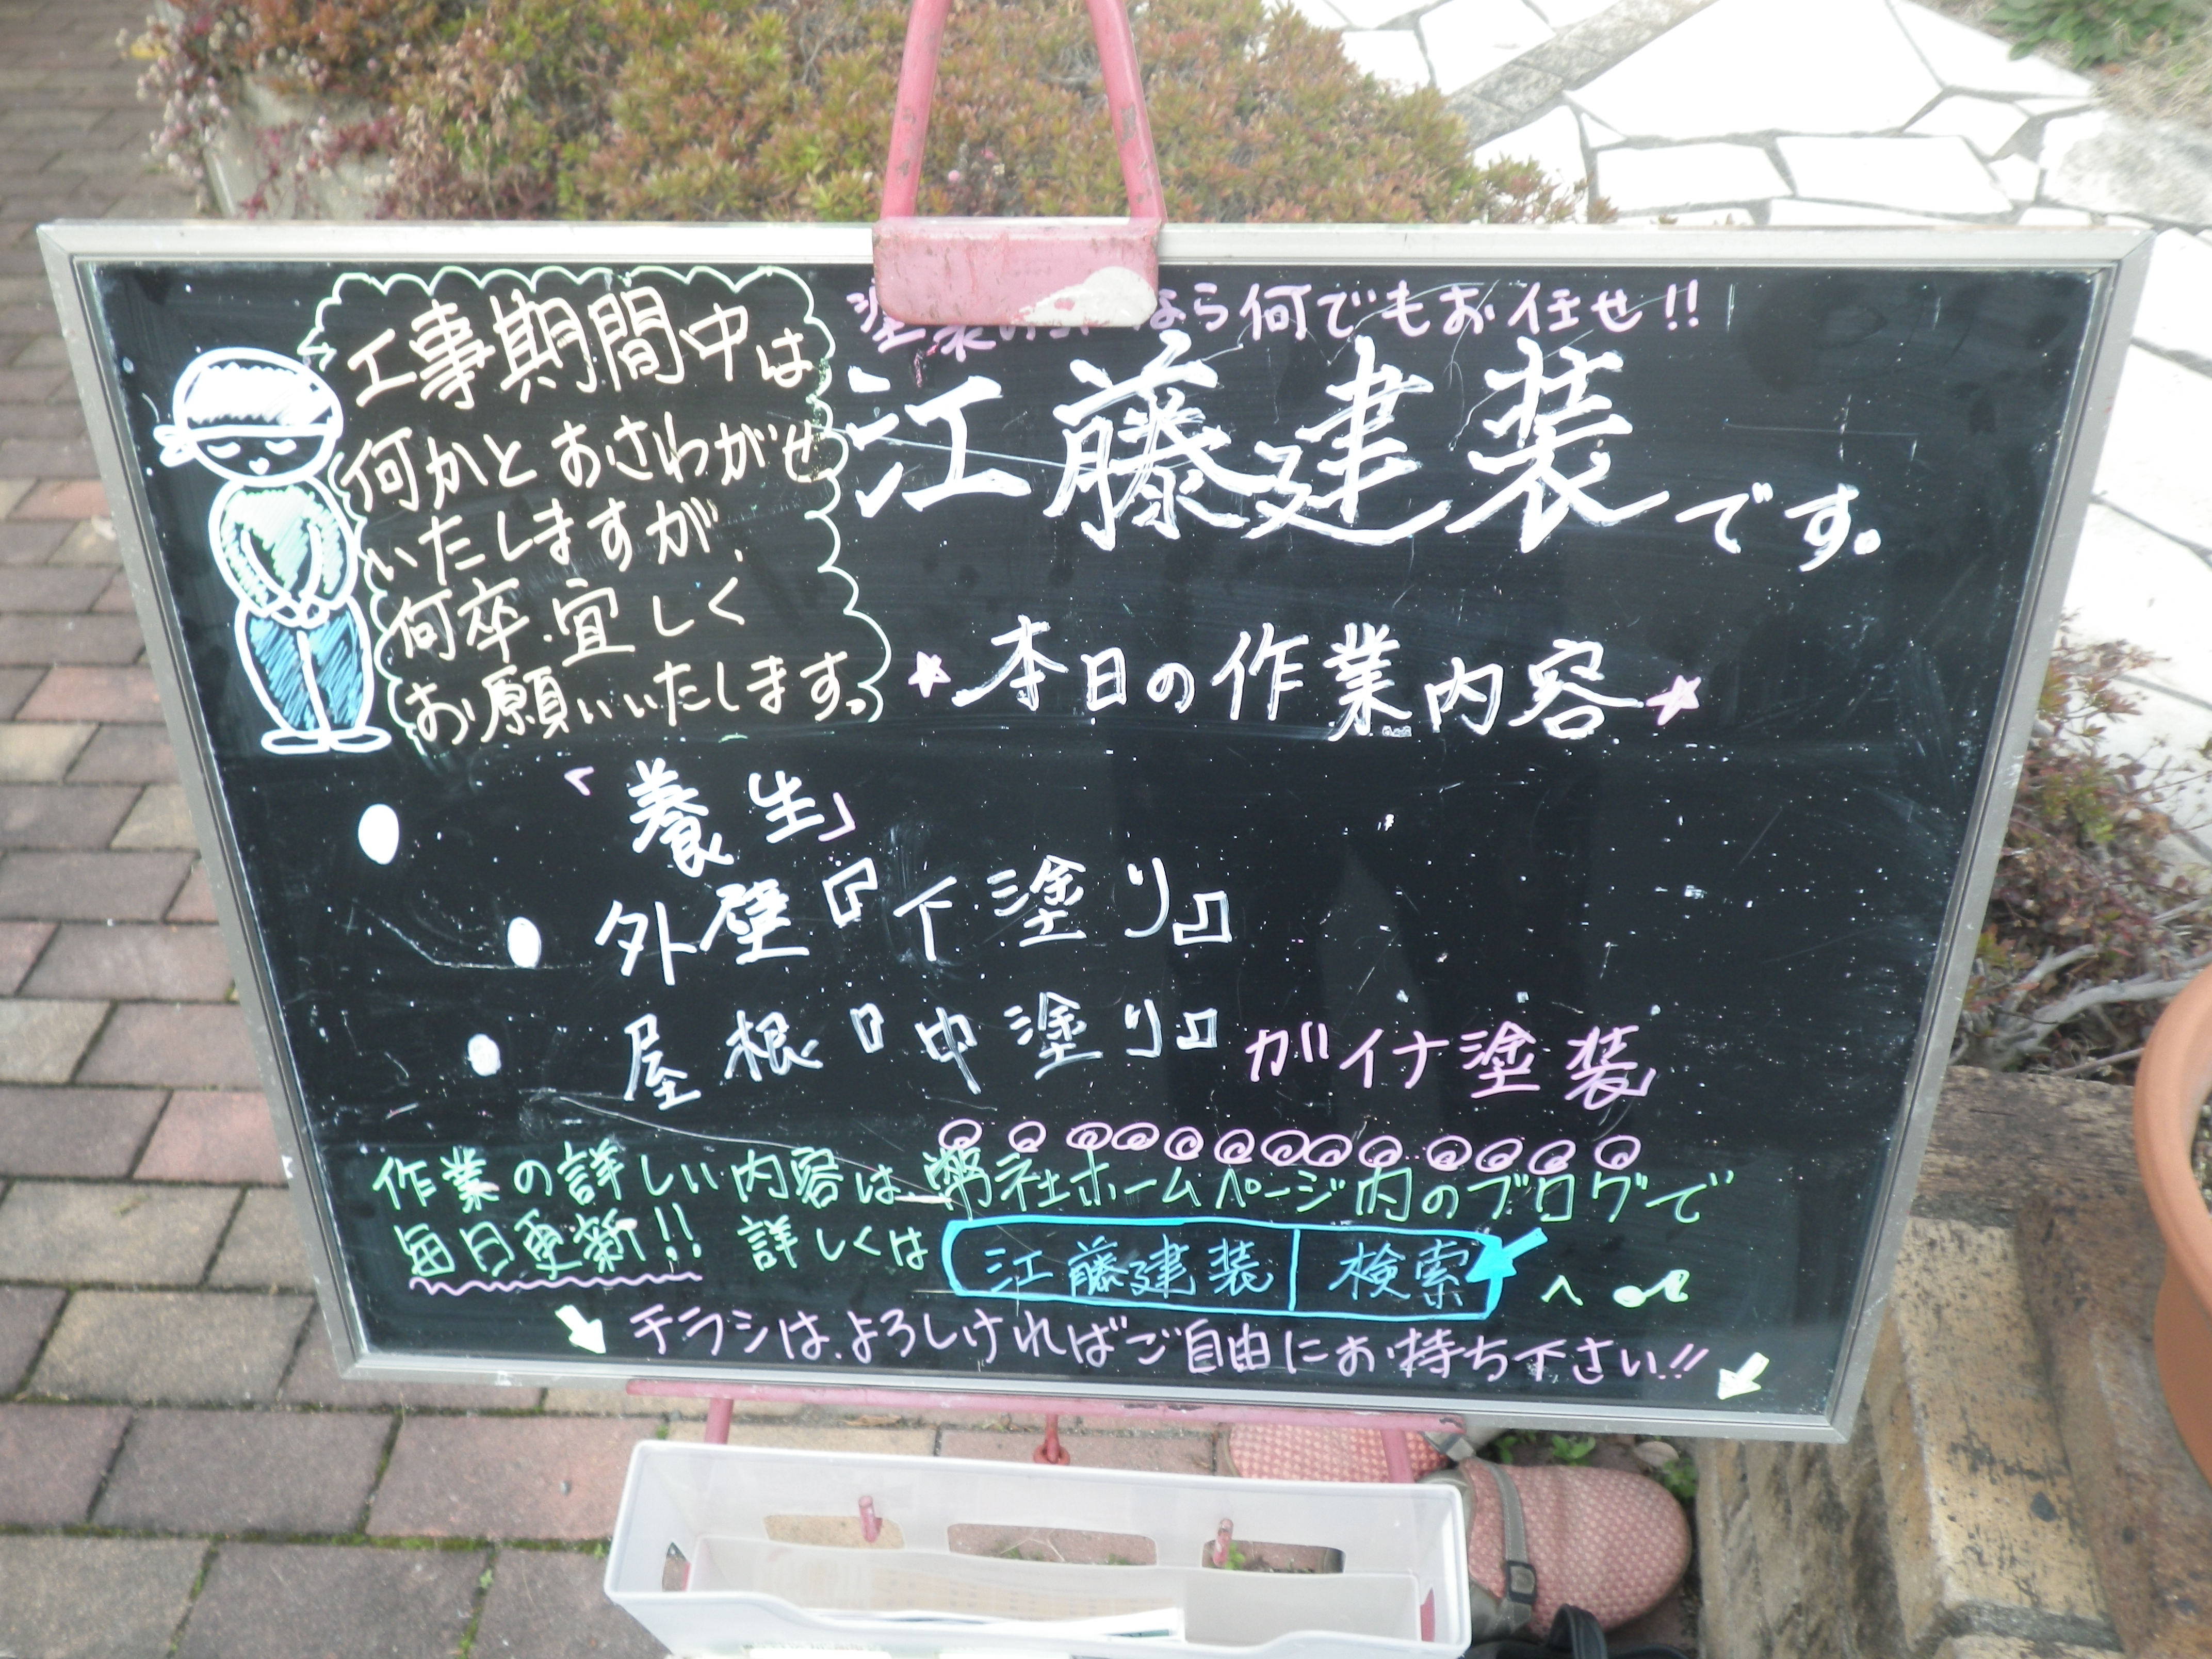 工事期間中は
何かとおさわがせ
いたしますが、
何卒宜しく
お願いいたします。
塗装の なら何でもお任せ!!
江藤建装です。
★本日の作業内容★
「養生」
外壁『下塗り』
屋根『中塗り』ガイナ塗装
作業の詳しい内容は弊社ホームページ内のブログで
毎日更新!! 詳しくは 江藤建装 検索 へ♪
チラシは、よろしければご自由にお持ち下さい!!